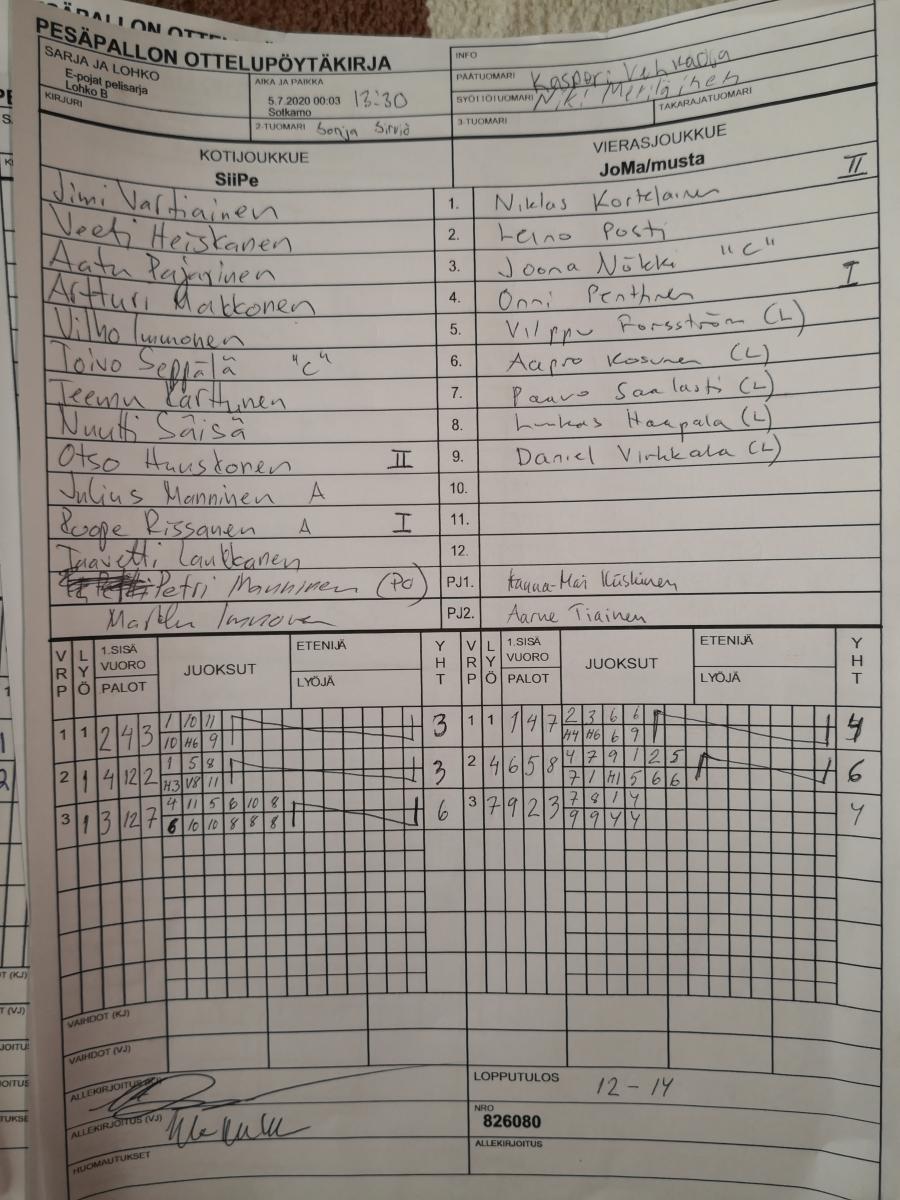 PESÄPALLON OTTELUPÖYTÄKIRJA
SARJA JA LOHKO
E-pojat pelisarja
Lohko B
KIRJURI
AIKA JA PAIKKA
5.7.2020 00:03 13:30
Sotkamo
2-TUOMARI Sonja Sirviö
INFO
PÄÄTUOMARI Kasperi
SYÖTTÖTUOMARI Niki Meriläinen
3-TUOMARI
TAKARAJATUOMARI
KOTIJOUKKUE VIERASJOUKKUE
SiiPe JoMa/musta
Jimi Vartiainen 1. Niklas Kortelainen II
Veeti Heiskanen 2. Leino Posti
Aatu Pajarinen 3. Joona Nökki "C"
Artturi Makkonen 4. Onni Penttinen I
Vilho Immonen 5. Vilppu Forsström (L)
Toivo Seppälä "C" 6. Aapro Kosunen (L)
Teemu Karttunen 7. Paavo Saalasti (L)
Nuutti Säisä 8. Luukas Haapala (L)
Otso Huuskonen II 9. Daniel Virkkala (L)
Julius Manninen A 10.
Roope Rissanen A I 11.
Taavetti Laukkanen 12.
Petri Manninen (PJ) PJ1. Hanna-Mari Kiiskinen
Markku Immonen PJ2. Aarne Tiainen
VRP LYÖ 1.SISÄ VUORO PALOT JUOKSUT ETENIJÄ LYÖJÄ YHT VRP LYÖ 1.SISÄ VUORO PALOT JUOKSUT ETENIJÄ LYÖJÄ YHT
1 1 2 4 3 1 10 11 3 1 1 1 4 7 2 3 6 6 4
10 H6 9 H4 H6 6 9
2 1 4 12 2 1 5 8 3 2 4 6 5 8 4 7 9 1 2 5 6
H3 V8 11 7 1 H1 5 6 6
3 1 3 12 7 4 11 5 6 10 8 6 3 7 9 2 3 7 8 1 4 4
6 10 10 8 8 8 9 9 4 4
VAIHDOT (KJ)
VAIHDOT (VJ)
ALLEKIRJOITUS (KJ)
LOPPUTULOS 12-14
ALLEKIRJOITUS (VJ)
NRO
826080
HUOMAUTUKSET
ALLEKIRJOITUS